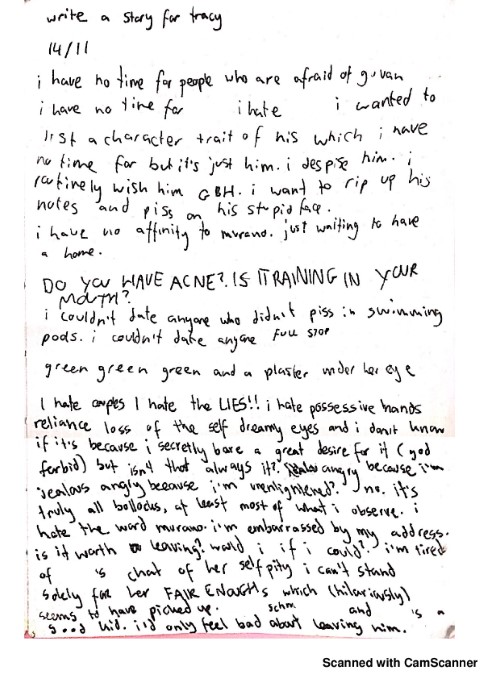 write a story for tracy
14/11
i have no time for people who are afraid of guvan
i have no time for i hate i wanted to
list a character trait of his which i have
no time for but it's just him. i despise him. i
routinely wish him GBH. i want to rip up his
notes and piss on his stupid face.
i have no affinity to murano. just waiting to have
a home.
DO YOU HAVE ACNE? IS IT RAINING IN YOUR
MOUTH?
i couldn't date anyone who didn't piss in swimming
pools. i couldn't date anyone FULL STOP
green green green and a plaster under her eye
I hate couples I hate the LIES!! i hate possessive hands
reliance loss of the self dreamy eyes and i don't know
if it's because i secretly bare a great desire for it (god
forbid) but isn't that always it? jealous angry because i'm
jealous angry because i'm unenlightened? no. it's
truly all bollocks, at least most of what i observe. i
hate the word murano. i'm embarrassed by my address.
is it worth leaving? would i if i could? i'm tired
of 's chat of her self pity i can't stand
solely for her FAIR ENOUGHs which (hilariously)
seems to have picked up. schm and is a
s...d kid. i'd only feel bad about leaving him.
Scanned with CamScanner